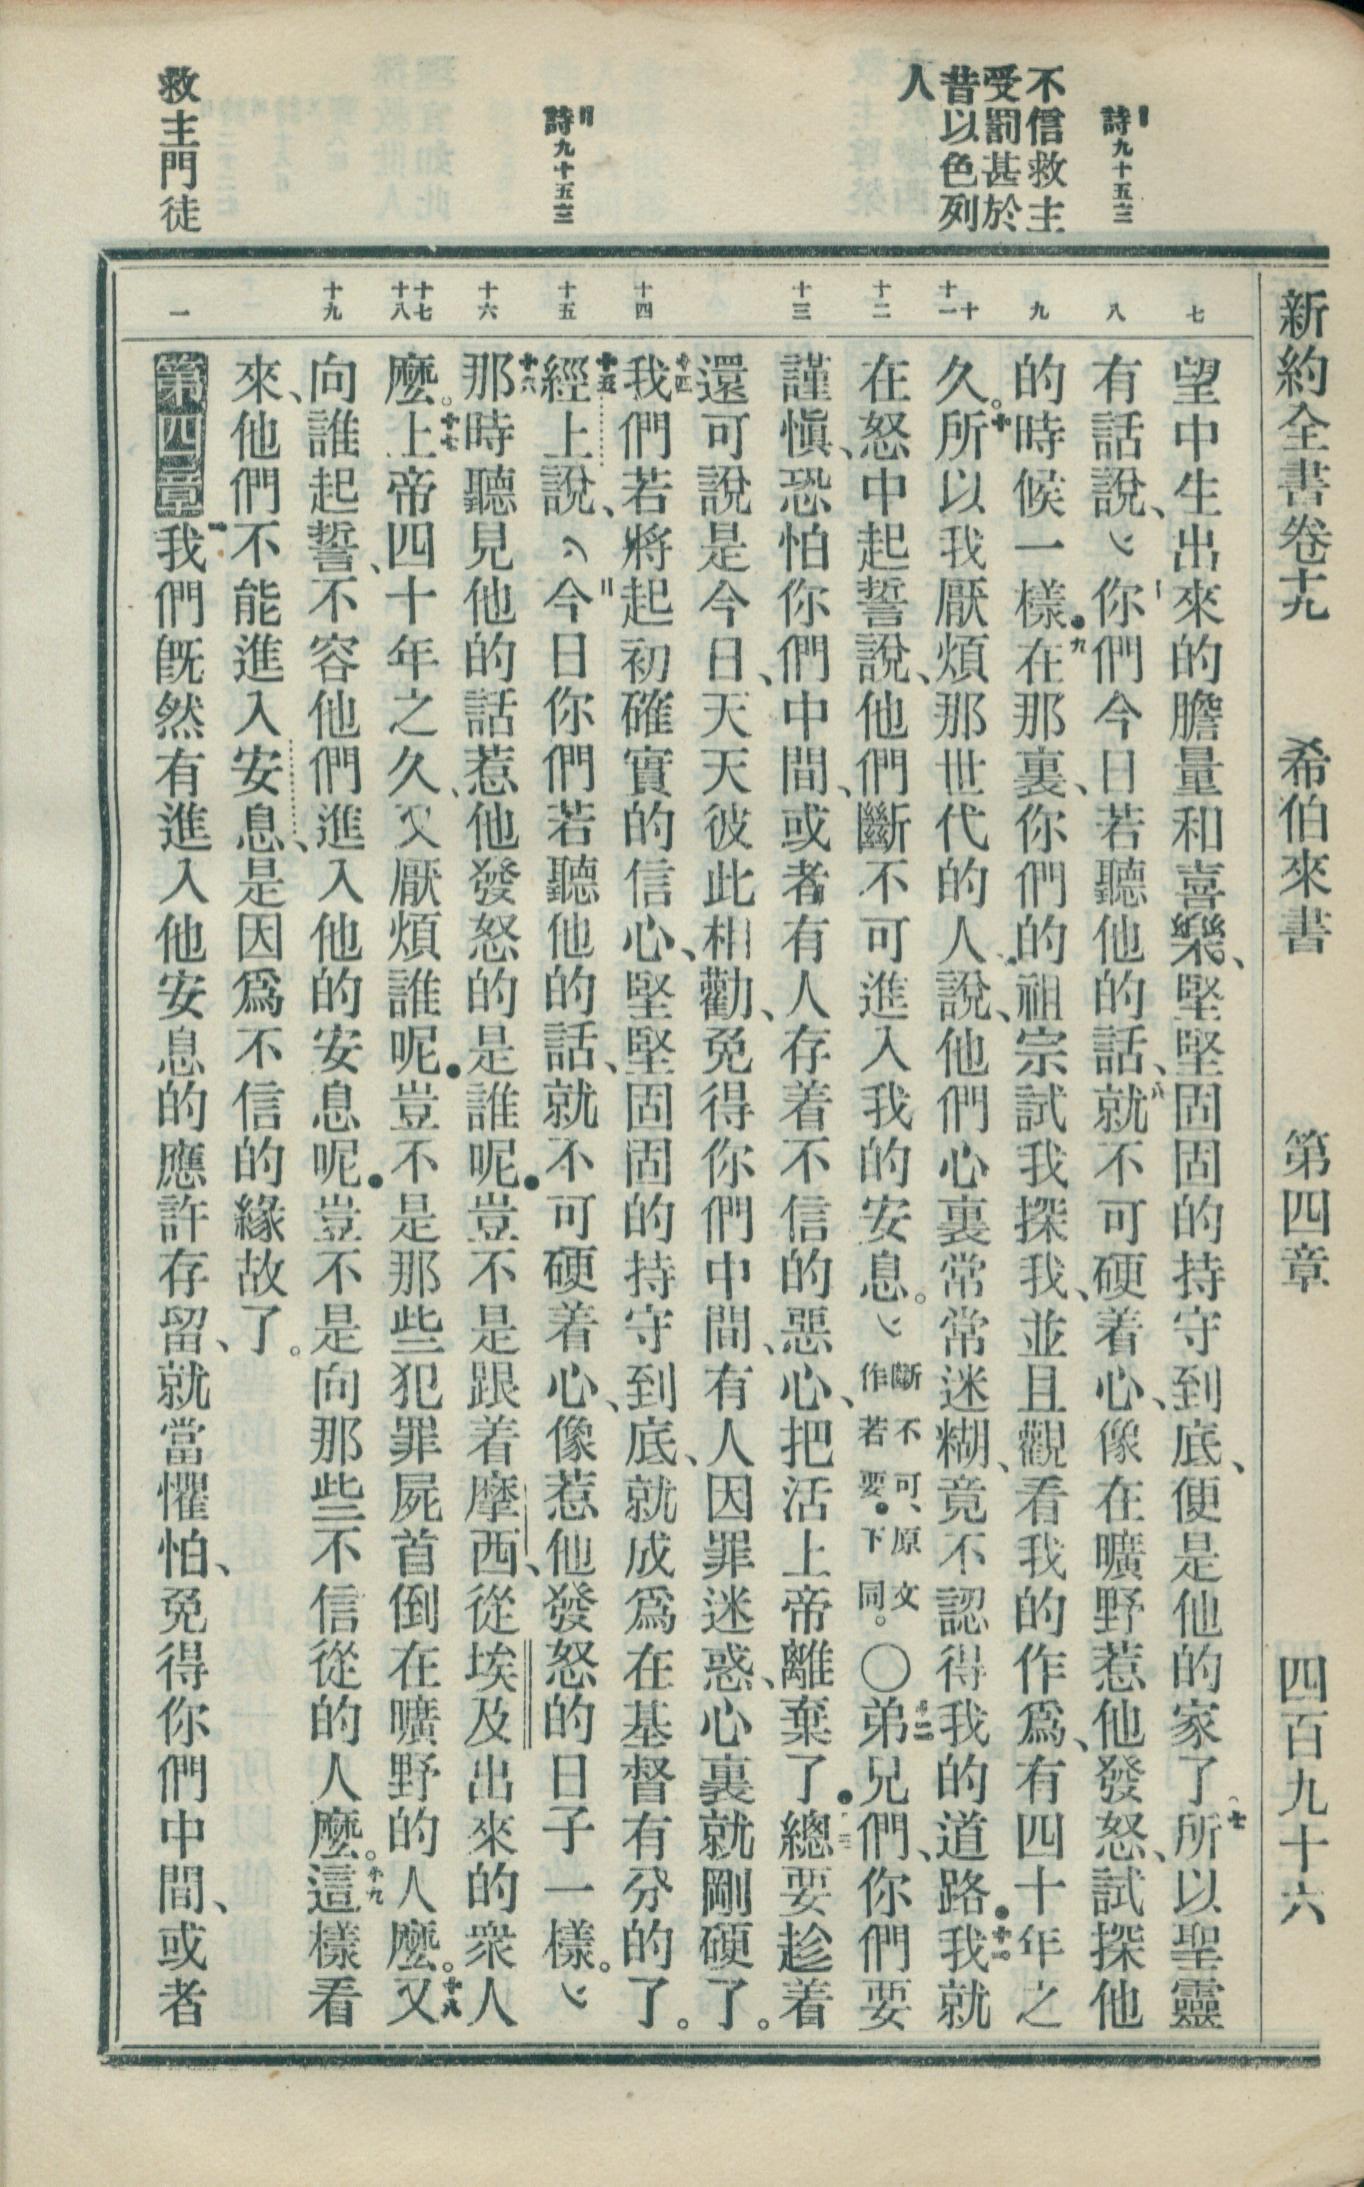 新約全書卷十九　希伯來書　第四章　四百九十六
詩九十五
不信救主
受罰甚於
昔以色列
人
詩九十五
救主門徒
七
八
九
十
十一
十二
十三
十四
十五
十六
十七
十八
十九
一
望中生出來的膽量和喜樂、堅堅固固的持守到底、便是他的家了七所以聖靈
有話說、你們今日若聽他的話、八就不可硬着心、像在曠野惹他發怒、試探他
的時候一樣．九在那裏、你們的祖宗試我探我、並且觀看我的作爲、有四十年之
久。十所以我厭煩那世代的人、說、他們心裏常常迷糊、竟不認得我的道路．十一我就
在怒中起誓說、他們斷不可進入我的安息。斷不可、原文作若要．下同。〇十二弟兄們、你們要
謹愼、恐怕你們中間、或者有人存着不信的惡心、把活上帝離棄了．十三總要趁着
還可說是今日、天天彼此相勸、免得你們中間、有人因罪迷惑、心裏就剛硬了。
十四我們若將起初確實的信心、堅堅固固的持守到底、就成爲在基督有分的了。
十五經上說、今日你們若聽他的話、就不可硬着心、像惹他發怒的日子一樣。
十六那時聽見他的話惹他發怒的是誰呢．豈不是跟着摩西、從埃及出來的衆人
麽。十七上帝四十年之久、又厭煩誰呢．豈不是那些犯罪屍首倒在曠野的人麽。十八又
向誰起誓、不容他們進入他的安息呢．豈不是向那些不信從的人麽。十九這樣看
來、他們不能進入安息、是因爲不信的緣故了。
第四章一我們旣然有進入他安息的應許存留、就當懼怕、免得你們中間、或者